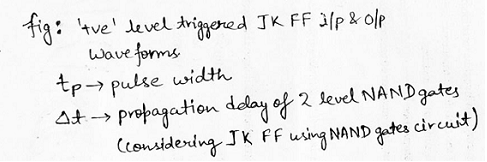 fig: '+ve' level triggered JK FF i/p & o/p
waveforms
tp → pulse width
Δt → propagation delay of 2 level NAND gates
(considering JK FF using NAND gates circuit)